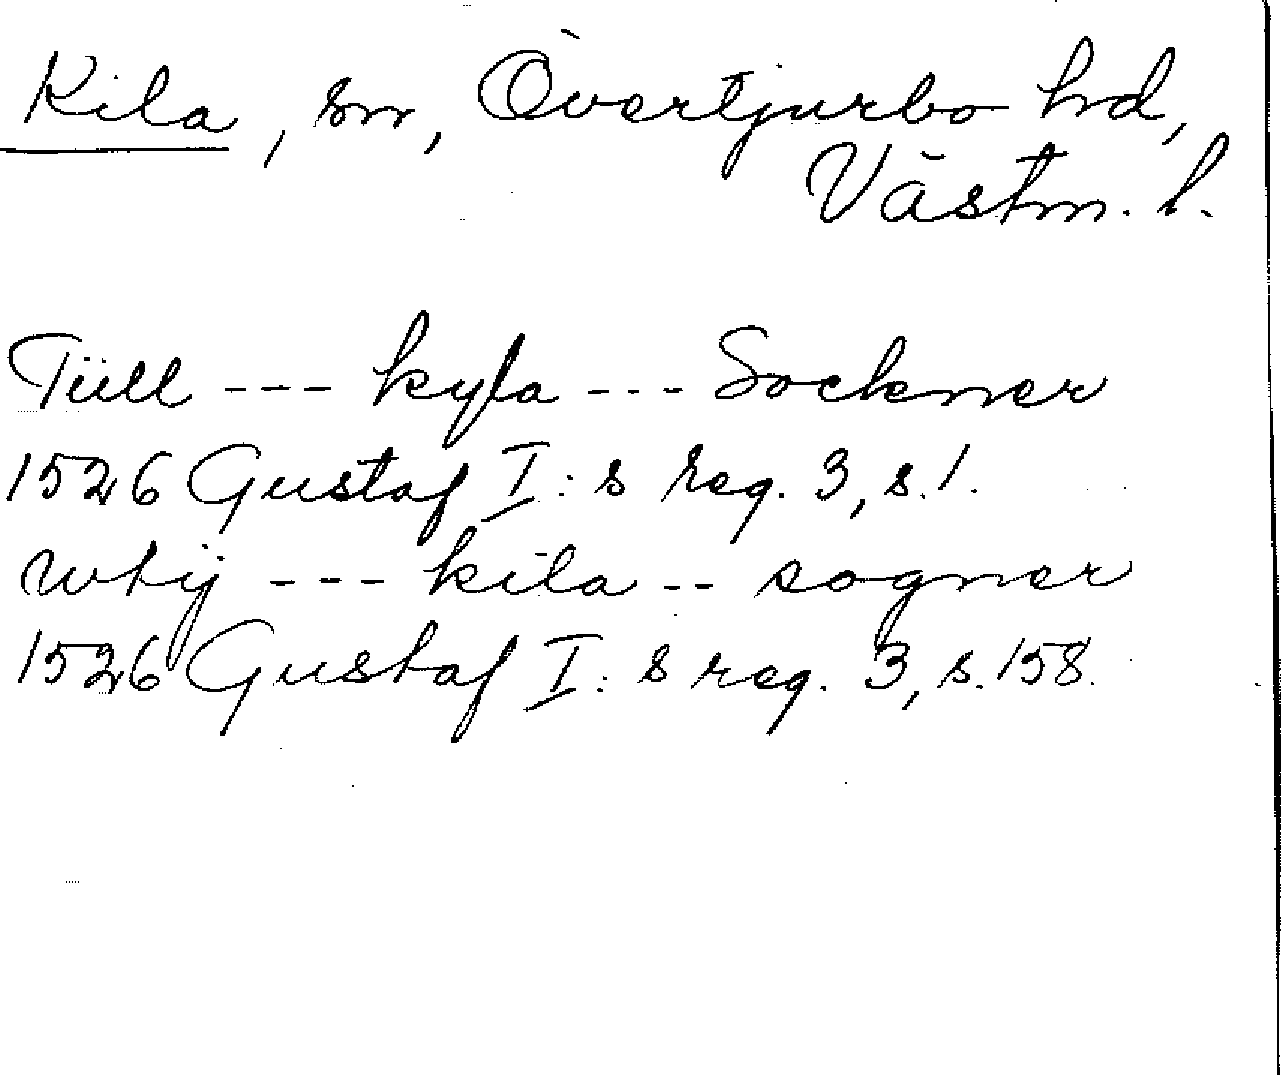 Kila, sn, Övertjurbo hd,
Västm. l.
Tüll --- kyla --- Sockner
1526 Gustaf I:s reg. 3, s. 1.
wtij --- kila -- sogner
1526 Gustaf I:s reg. 3, s. 158.